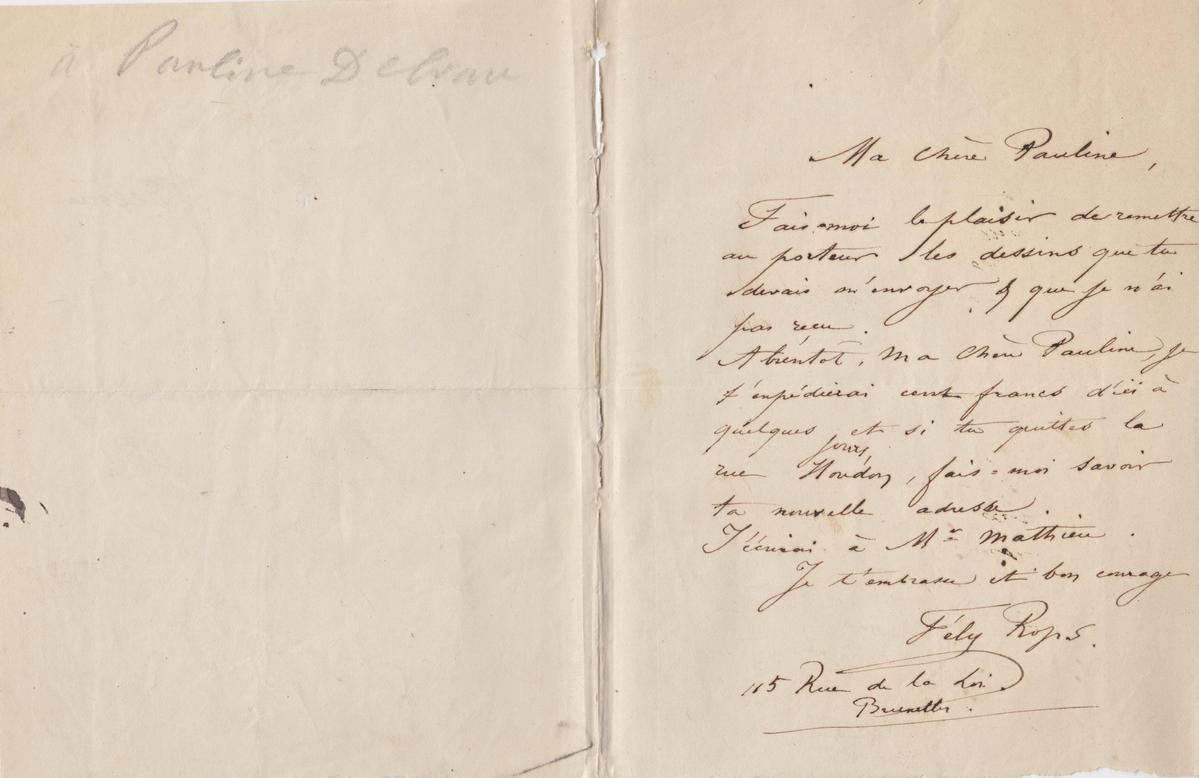 à Pauline Delvau
Ma chère Pauline,
Fais-moi le plaisir de remettre
au porteur les dessins que tu
devais m'envoyer & que je n'ai
pas reçu.
A bientôt, ma chère Pauline, je
t'expédierai cent francs d'ici à
quelques jours, et si tu quittes la
rue Houdon, fais-moi savoir
ta nouvelle adresse.
J'écrirai à Mr Mathieu.
Je t'embrasse et bon courage
Fély Rops.
115 Rue de la Loi
Bruxelles.